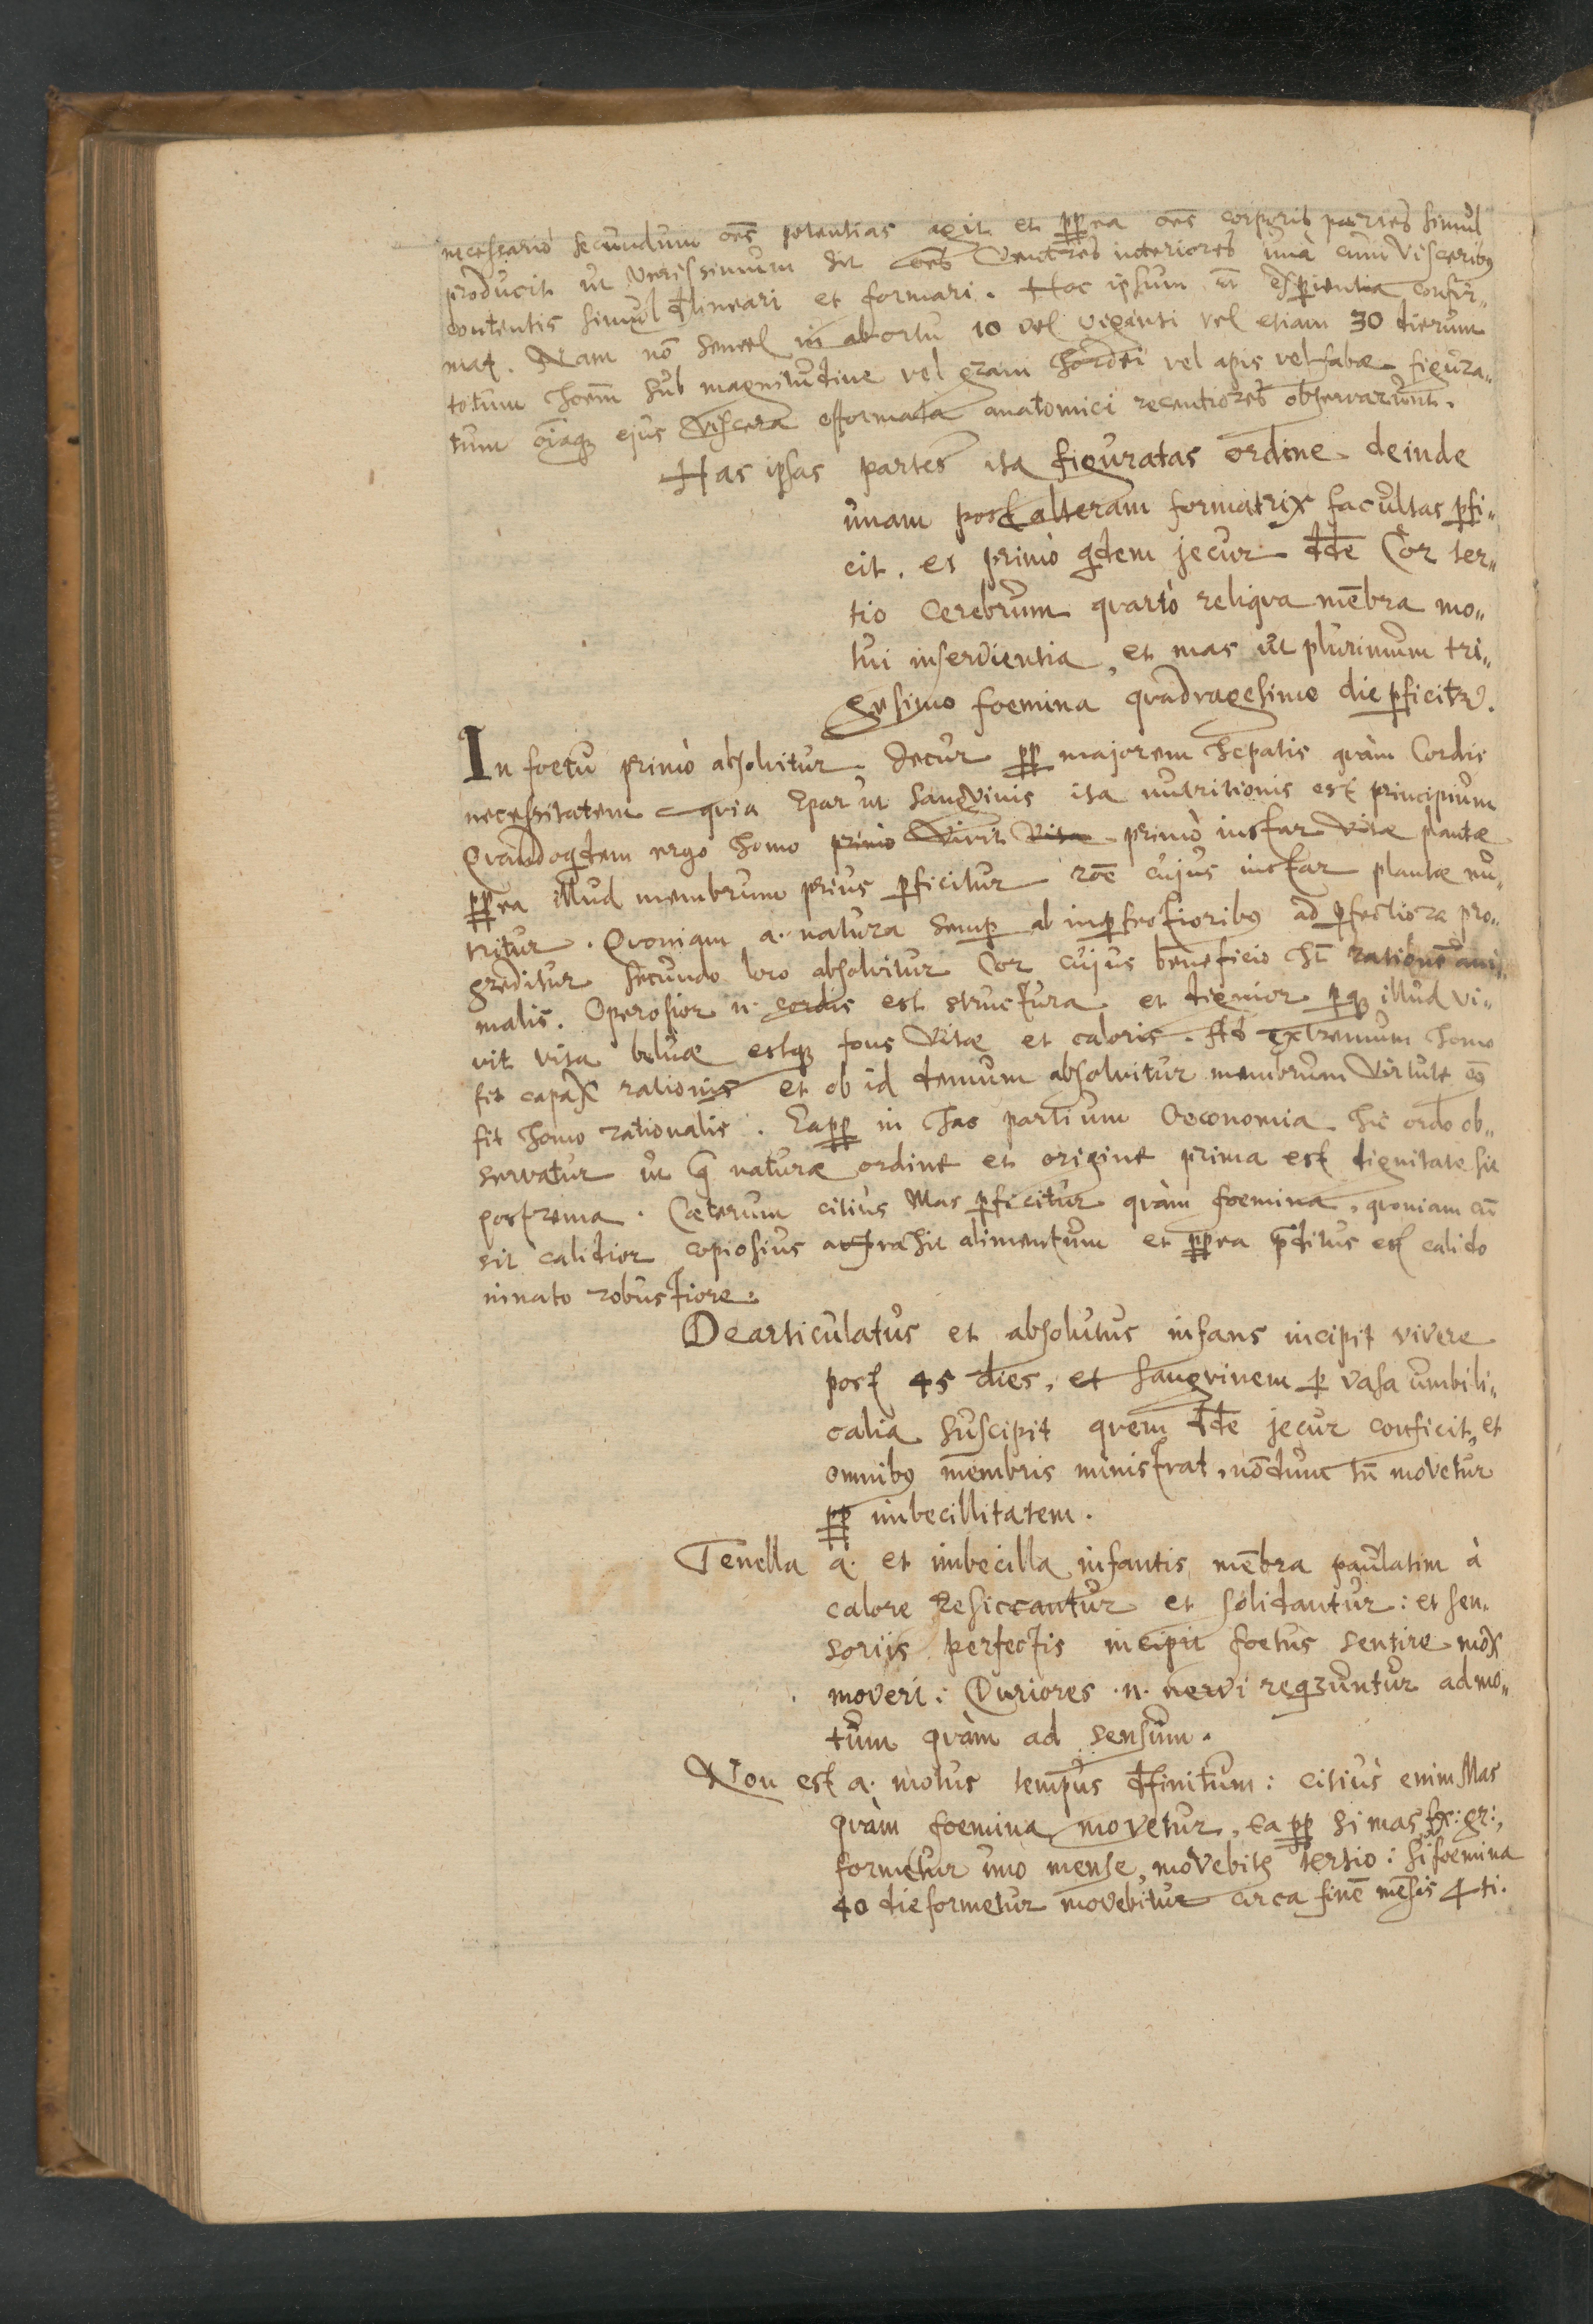 necessariò secundum oēs potentias agit et ꝓꝑea oēs corporis partes simul
producit ut verissimum sit oēs ventres interiores unà cum visceribꝰ
contentis simul đlineari et formari. Hoc ipsum ēt exꝑientia confir„
mat. Nam nō semel in abortu 10 vel viginti vel etiam 30 dierum
totum hoēm sub magnitudine vel grani hordei vel apis vel fabæ figura„
tum oīaqꝫ ejus viscera efformata anatomici recentiores observarunt.
Has ipsas partes ita figuratas ordine deinde
unam post alteram formatrix facultas ꝑfi„
cit. et primò qdem jecur đđe Cor ter„
tio cerebrum quartò reliqua mēbra mo„
tui inservientia, et mas ut plurimum tri„
gesimo foemina quadragesimo die ꝑficitr.
In foetu primò absolvitur Jecur ꝓꝑ majorem hepatis quàm Cordis
necessitatem quia Epar ut sangvinis ita nutritionis est principium
Quandoqdem ergo homo primò vivit vita primò instar vitæ plantæ
ꝓꝑea illud membrum prius ꝑficitur rōe cujus instar plantæ nu„
tritur. Quoniam a. natura semꝑ ab imꝑfectioribꝰ ad ꝑfectiora pro„
greditur secundo loco absolvitur Cor cujus beneficio ht̄ rationē ani„
malis. Operosior n. cordis est structura et dignior ꝑqꝫ illud vi„
vit vita beluæ estqꝫ fons vitæ et caloris. Ad extremum homo
fit capax rationis et ob id demum absolvitur membrum virtute cꝰ
fit homo rationalis. Eaꝓꝑ in hac partium Oeconomia hic ordo ob„
servatur ut q̄ naturæ ordine et origine prima est dignitate sit
postrema. Cæterum citius Mas ꝑficitur quàm foemina, quoniam cū
sit calidior copiosius attrahit alimentum et ꝓꝑea p̄ditus est calido
innato robustiore.
Dearticulatus et absolutus infans incipit vivere
post 45 dies, et sangvinem ꝑ vasa umbili„
calia suscipit quem đđe jecur conficit, et
omnibꝰ membris ministrat, nōdum tn̄ movetur
ꝓꝑ imbecillitatem.
Tenella a. et imbecilla infantis mēbra paulatim à
calore desiccantur et solidantur: et sen„
soriis perfectis incipit foetus sentire mox
moveri: Duriores .n. nervi reqruntur ad mo„
tum quàm ad sensum.
Non est a. motus tempus đfinitum: citius enim Mas
quàm foemina movetur, eaꝓꝑ si mas ex: gr:,
formetur uno mense, movebitr tertio: si foemina
40 die formetur movebitur circa finē mēsis 4ti.